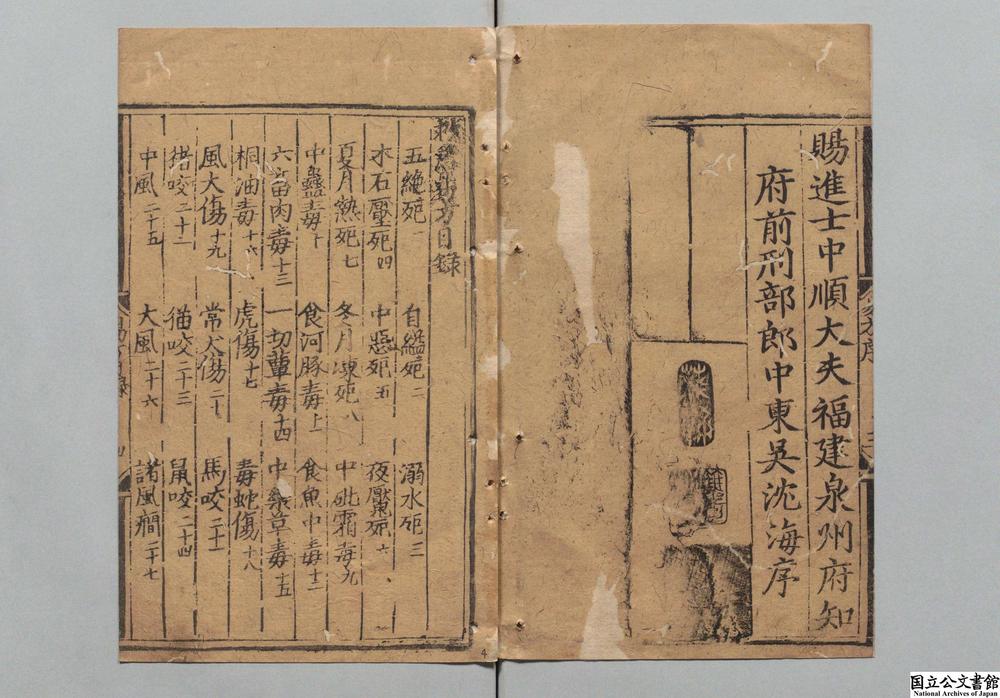 賜進士中順大夫福建泉州府知
府前刑部郎中東吳沈海序
救急易方目錄
五絶死一 自縊死二 溺水死三
木石壓死四 中惡死五 夜魘死六
夏月熱死七 冬月凍死八 中砒霜毒九
中蠱毒十 食河豚毒十一 食魚中毒十二
六畜肉毒十三 一切蕈毒十四 中藥草毒十五
桐油毒十六 虎傷十七 毒蛇傷十八
風犬傷十九 常犬傷二十 馬咬二十一
猪咬二十二 猫咬二十三 鼠咬二十四
中風二十五 大風二十六 諸風癎二十七
4
国立公文書館
National Archives of Japan